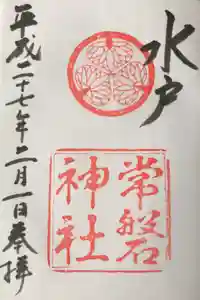 水戸
常磐
神社
平成二十七年二月一日奉拝